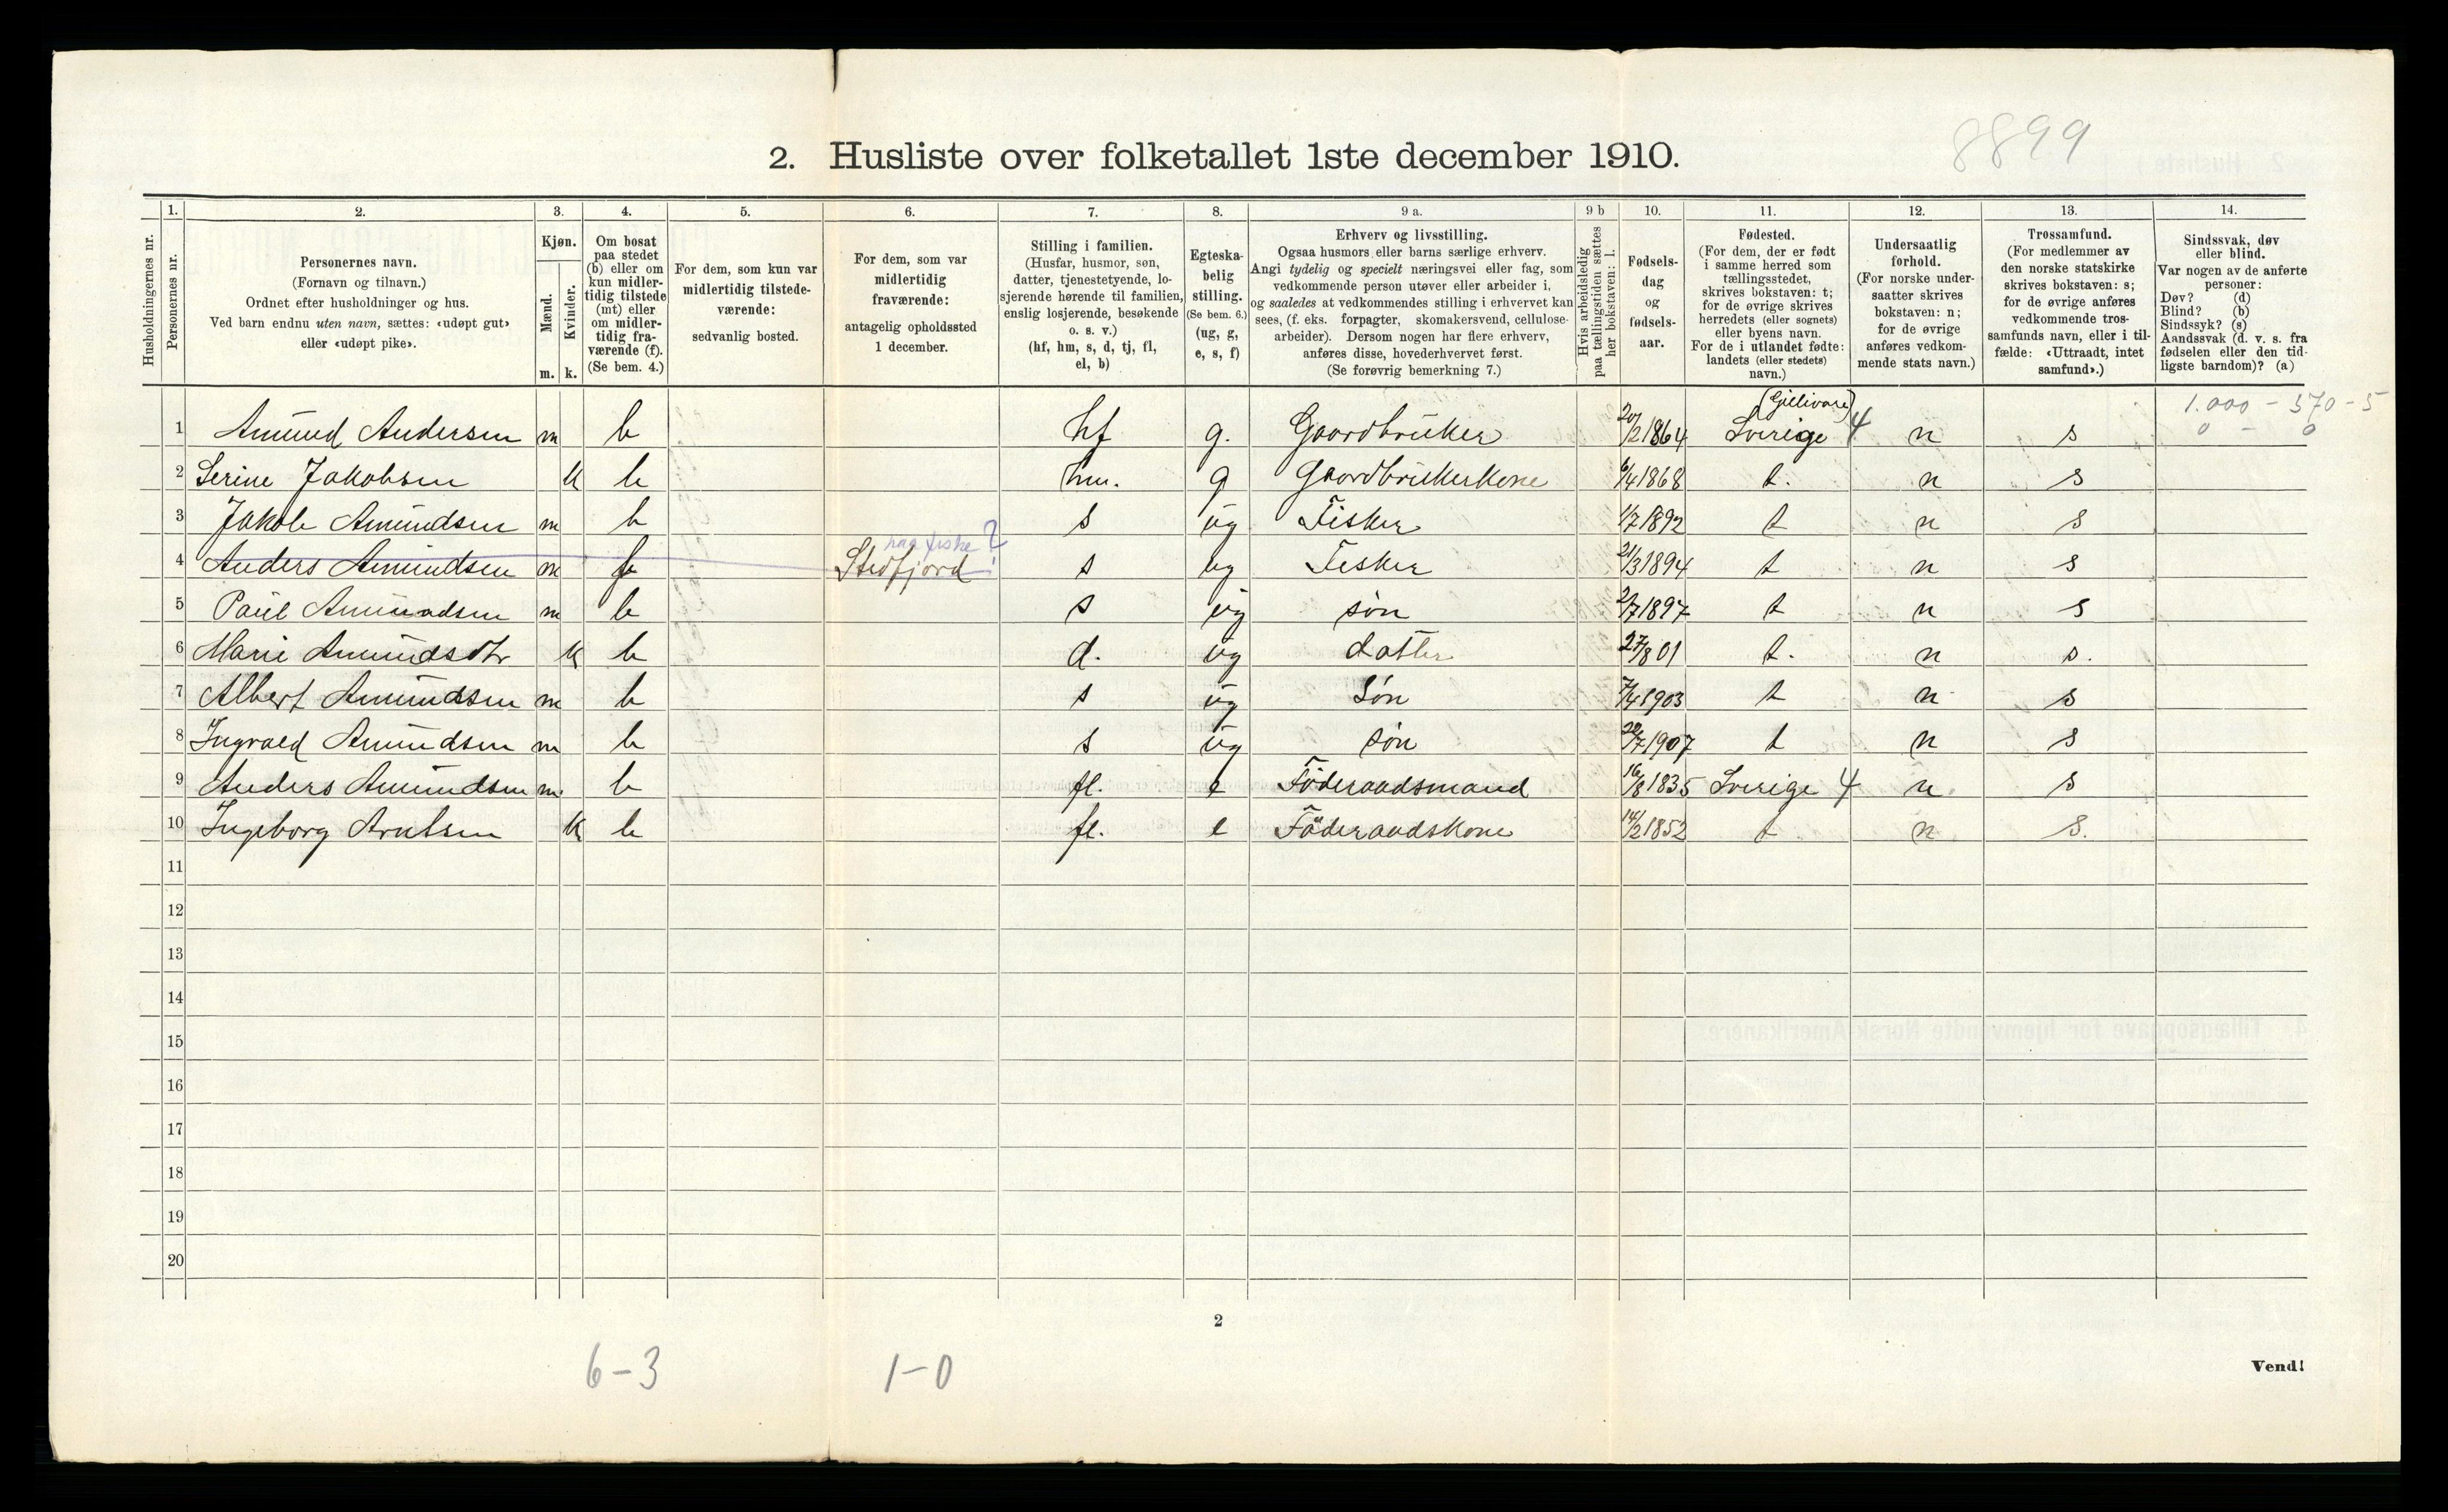 8899
2. Husliste over folketallet 1ste december 1910.
Husholdningernes nr.
1. Personernes nr.
2. Personernes navn.
(Fornavn og tilnavn.)
Ordnet efter husholdninger og hus.
Ved barn endnu uten navn, sættes: «udøpt gut»
eller «udøpt pike».
3. Kjøn.
Mænd. Kvinder.
m. k.
4. Om bosat
paa stedet
(b) eller om
kun midler-
tidig tilstede
(mt) eller
om midler-
tidig fra-
værende (f).
(Se bem. 4.)
5. For dem, som kun var
midlertidig tilstede-
værende:
sedvanlig bosted.
6. For dem, som var
midlertidig
fraværende:
antagelig opholdssted
1 december.
7. Stilling i familien.
(Husfar, husmor, søn,
datter, tjenestetyende, lo-
sjerende hørende til familien,
enslig losjerende, besøkende
o. s. v.)
(hf, hm, s, d, tj, fl,
el, b)
8. Egteska-
belig
stilling.
(Se bem. 6.)
(ug, g,
e, s, f)
9 a. Erhverv og livsstilling.
Ogsaa husmors eller barns særlige erhverv.
Angi tydelig og specielt næringsvei eller fag, som
vedkommende person utøver eller arbeider i,
og saaledes at vedkommendes stilling i erhvervet kan
sees, (f. eks. forpagter, skomakersvend, cellulose-
arbeider). Dersom nogen har flere erhverv,
anføres disse, hovederhvervet først.
(Se forøvrig bemerkning 7.)
9 b Hvis arbeidsledig
paa tællingstiden sættes
her bokstaven: l.
10. Fødsels-
dag
og
fødsels-
aar.
11. Fødested.
(For dem, der er født
i samme herred som
tællingsstedet,
skrives bokstaven: t;
for de øvrige skrives
herredets (eller sognets)
eller byens navn.
For de i utlandet fødte:
landets (eller stedets)
navn.)
12. Undersaatlig
forhold.
(For norske under-
saatter skrives
bokstaven: n;
for de øvrige
anføres vedkom-
mende stats navn.)
13. Trossamfund.
(For medlemmer av
den norske statskirke
skrives bokstaven: s;
for de øvrige anføres
vedkommende tros-
samfunds navn, eller i til-
fælde: «Uttraadt, intet
samfund».)
14. Sindssvak, døv
eller blind.
Var nogen av de anførte
personer:
Døv? (d)
Blind? (b)
Sindssyk? (s)
Aandssvak (d. v. s. fra
fødselen eller den tid-
ligste barndom)? (a)
(Gillivare) 1.000 - 570 - 5
1 Amund Andersen m b hf g. Gaardbruker 20/2 1864 Sverige 4 n s 0 - 0
2 Serine Jakobsen k b hm. g Gaardbrukerkone 6/4 1868 t. n s
3 Jakob Amundsen m b s ug Fisker 1/7 1892 t n s
4 Anders Amundsen m f Stedfjord s ug Fisker 21/3 1894 t n s
5 Paul Amundsen m b s ug søn 2/7 1897 t n s
6 Marie Amundsdtr k b d. ug datter 27/8 01 t. n s.
7 Albert Amundsen m b s ug Søn 7/4 1903 t n s
8 Ingvald Amundsen m b s ug søn 28/7 1907 t n s
9 Anders Amundsen m b fl. e Föderaadsmand 16/8 1835 Sverige 4 n s
10 Ingeborg Arntsen k b fl. e Föderaadskone 14/2 1852 t n s.
11
12
13
14
15
16
17
18
19
20
2
6-3 1-0
Vend!